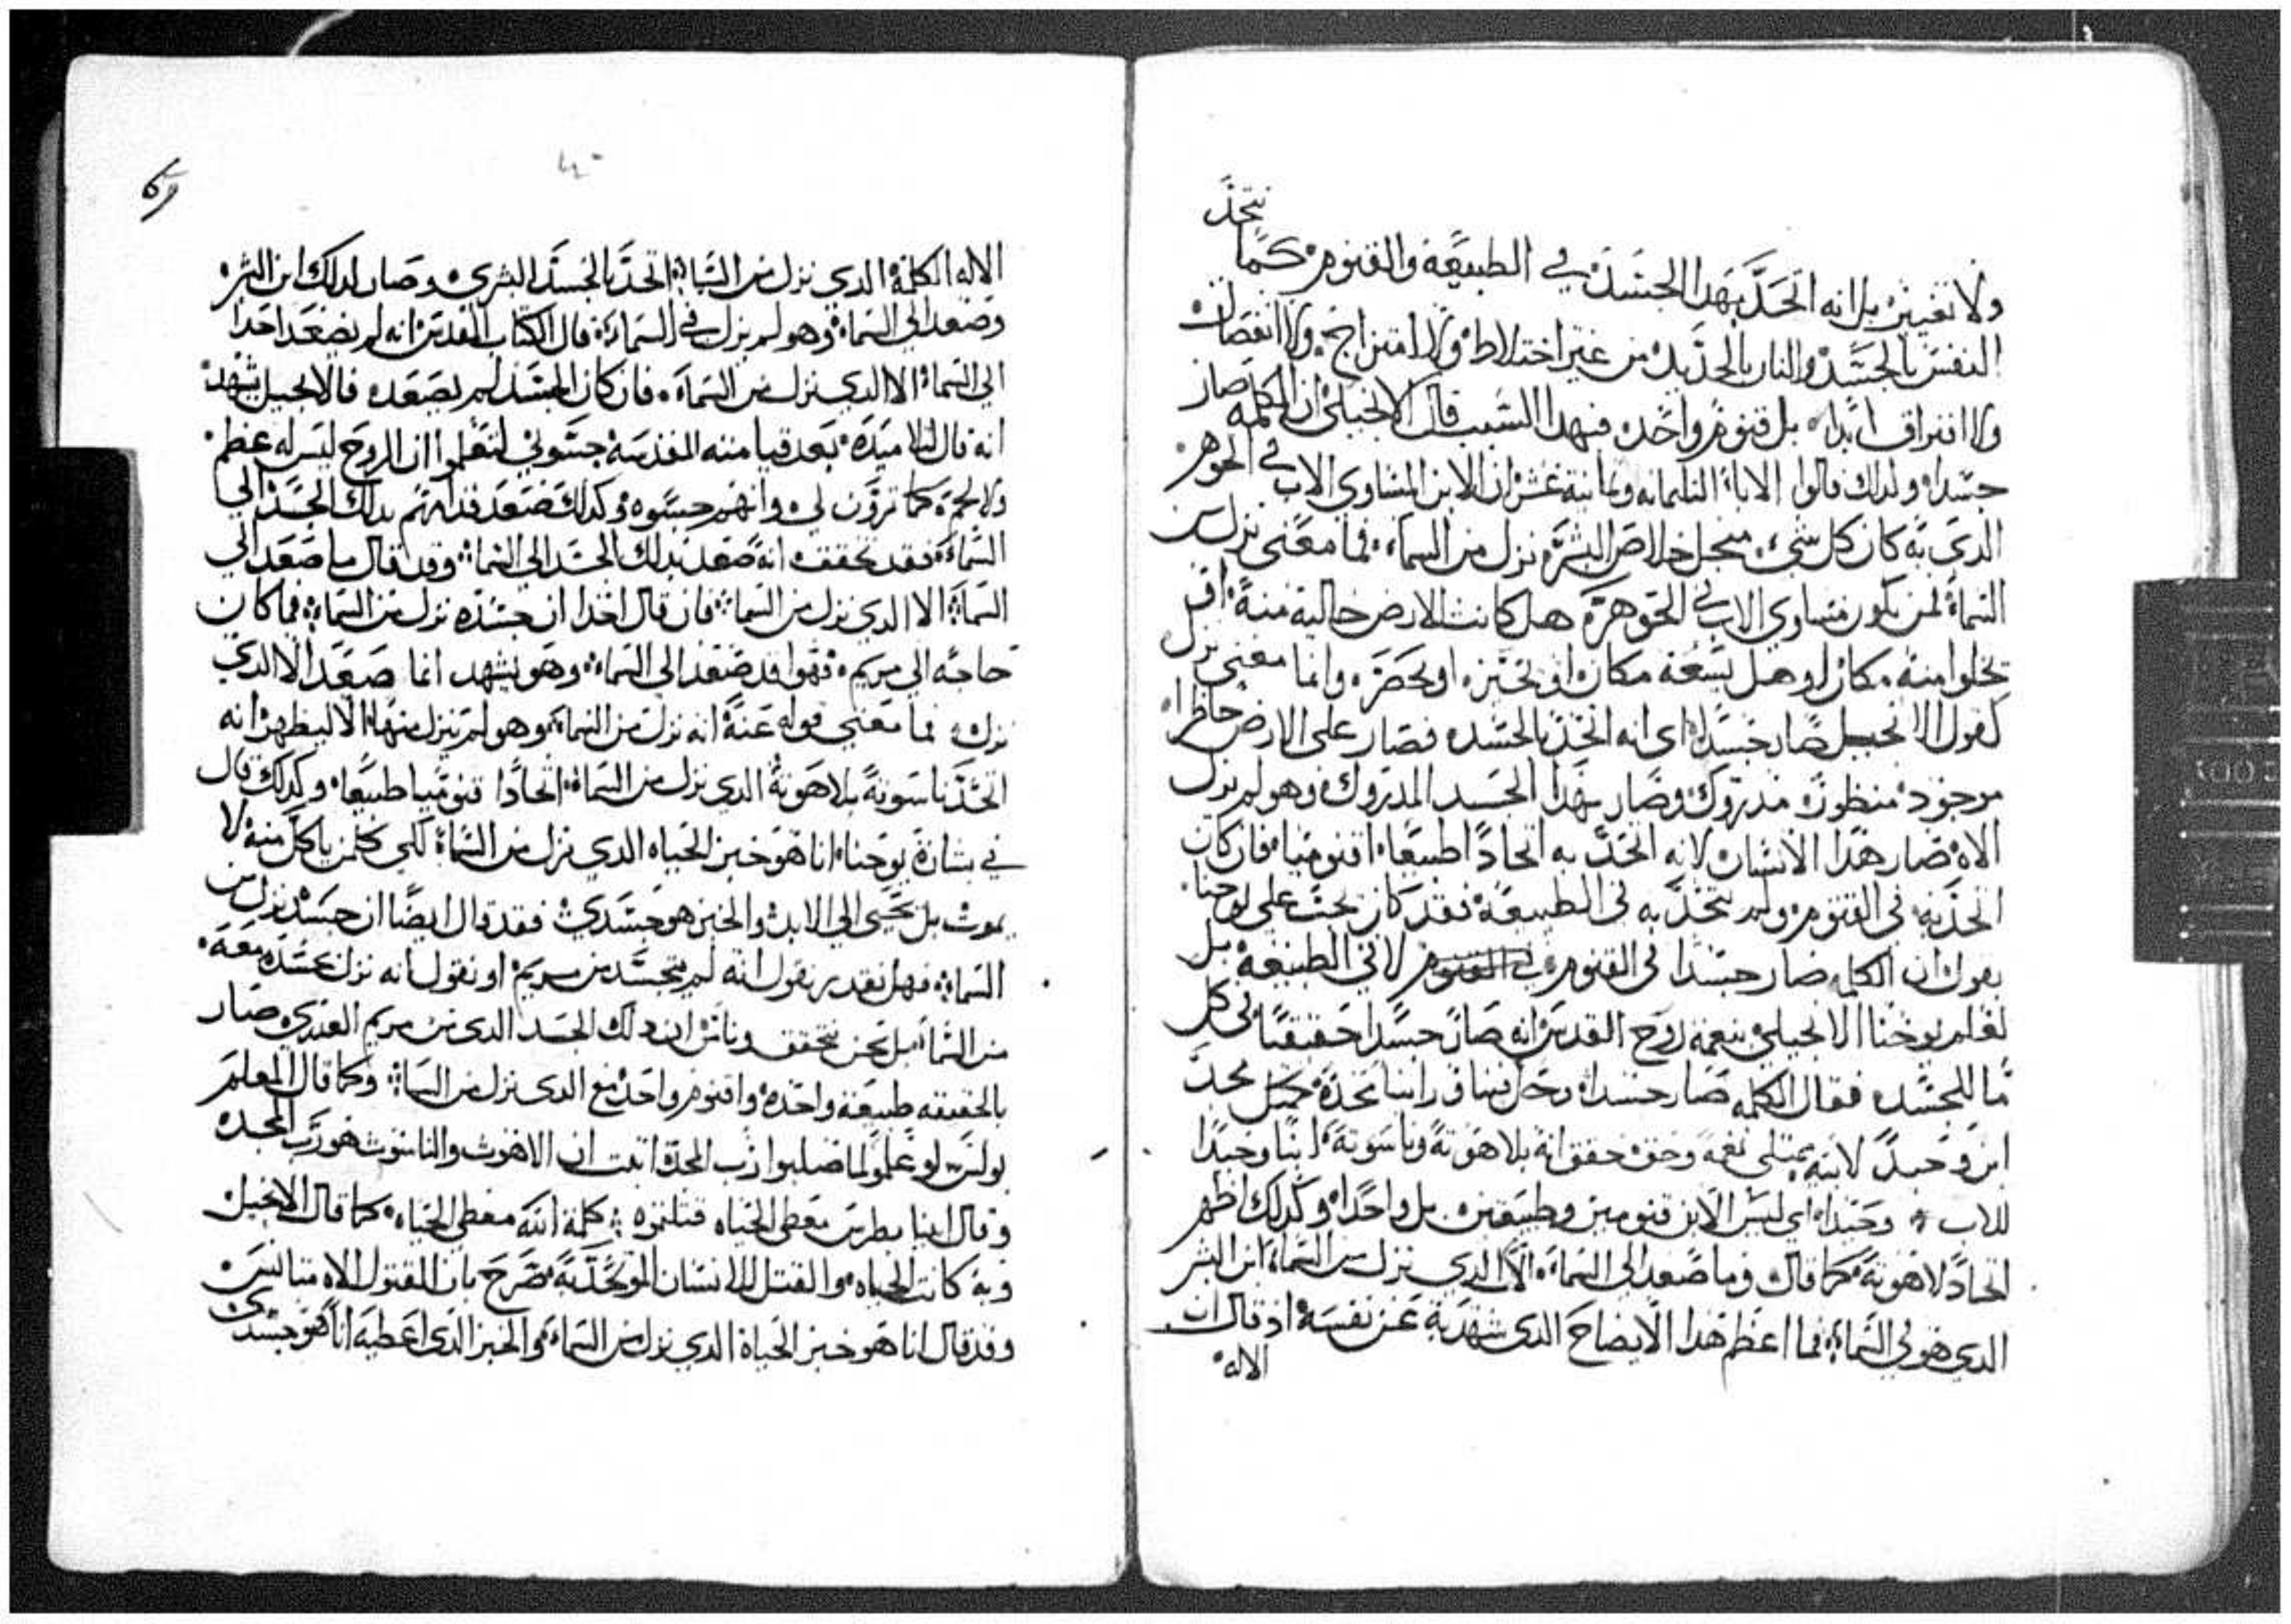 نتحد
ولا تغيير بل انه اتحد بهدا الجسد في الطبيعة والقنوم كما
النفس بالجسد والنار بالحديد من غير اختلاط ولا امتزاج ولا انفصال
ولا افتراق ابدا بل قنوم واحد فبهدا السبب قال الانجيلي ان الكلمه صار
جسدا ولدلك قالوا الابا التلتمايه وتمانية عشر ان الابن المساوي الاب في الجوهر
الدي به كان كل شيء من اجل خلاص البشر نزل من السماء فما معنى نزل من
السماء لمن يكون مساوي الاب في الجوهر هل كانت الارض خالية منه او
يخلوا منه مكان او هل يسعه مكان او تحيز او تحصره وانما معنى نزل
كقول الانجيل صار جسدا اى انه اتحد بالجسد فصار على الارض حاظرا
موجود منظور مدروك وصار بهدا الجسد المدروك وهو لم يزل
الاه صار هدا الانسان لانه اتحد به اتحادا طبيعا اقنوميا فان كان
اتحد به في القنوم ولم يتحد به في الطبيعة فقد كان يجب على يوحنا
يقول ان الكلمه صار جسدا في القنوم لا في الطبيعة بل
لعلم يوحنا الانجيلي بنعمة روح القدس انه صار جسدا حقيقيا في كل
ما للجسد فقال الكلمه صار جسدا وحل فينا وراينا مجده كمثل مجد
ابن وحيد لابيه ممتلى نعمه وحق حقق انه بلاهوته وناسوته ابنا وحيدا
للاب وحيدا اي ليس الابن قنومين وطبيعتين بل واحدا وكدلك اظهر
اتحاد لاهوته كما قال وما صعد الى السماء الا الدي نزل من السماء ابن البشر
الدي هو في السماء فما اعظم هدا الايضاح الدى شهد به عن نفسه اد قال ان
الاله
الاله الكلمة الدي نزل من السماء اتحد بالجسد البشري وصار لدلك ابن البشر
وصعد الى السماء وهو لم يزل في السماء قال الكتاب المقدس انه لم يصعد احدا
الى السماء الا الدي نزل من السماء فان كان الجسد لم يصعد فالانجيل يشهد
انه قال لتلاميده بعد قيامته المقدسة جسوني لتعلموا ان الروح ليس له عظم
ولا لحم كما ترون لي وانهم جسوه وكدلك صعد قدامهم بدلك الجسد الى
السماء فقد تحقق انه صعد بدلك الجسد الى السماء وقد قال ما صعد الى
السماء الا الدي نزل من السماء فان قال احدا ان جسده نزل من السماء فما كان
حاجه الى مريم فهوا قد صعد الى السماء وهو يشهد انما صعد الا الدي
نزل فما معنى قوله عنه انه نزل من السماء وهو لم ينزل منها الا ليظهر انه
اتحد ناسوته بلاهوته الدي نزل من السماء اتحادا قنوميا طبيعا وكدلك قال
في بشارة يوحنا انا هو خبز الحياه الدي نزل من السماء لكي كلمن ياكل منه لا
يموت بل يحيى الى الابد والخبز هو جسدي فقد قال ايضا ان جسده نزل من
السماء فهل نقدر نقول انه لم يتجسد من مريم او نقول انه نزل بجسده معه
من السماء بل نحن نتحقق ان دلك الجسد الدي من مريم العدرى صار
بالحقيقه طبيعة واحدة واقنوم واحد مع الدي نزل من السماء وكما قال المعلم
بولس لو علموا لما صلبوا رب المجد اتبت ان الاهوت والناسوت هو رب المجد
وقال ابينا بطرس معطى الحياه قتلتموه كلمة الله معطى الحياه كما قال الانجيل
وبه كانت الحياه والقتل للانسان المتحد به صرح بان المقتول الاه متانس
وقد قال انا هو خبز الحياة الدي نزل من السماء والخبز الدى اعطيه انا هو جسدى